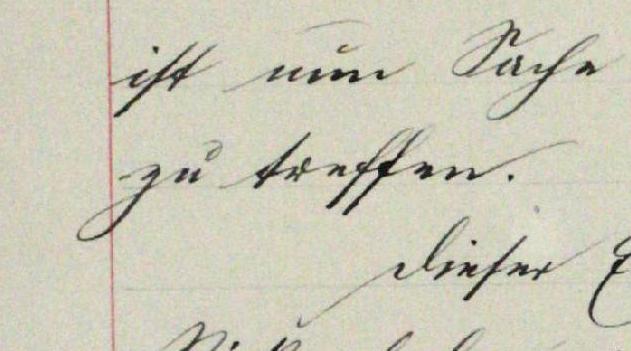 ist nun Sache
zu treffen.
Dieser